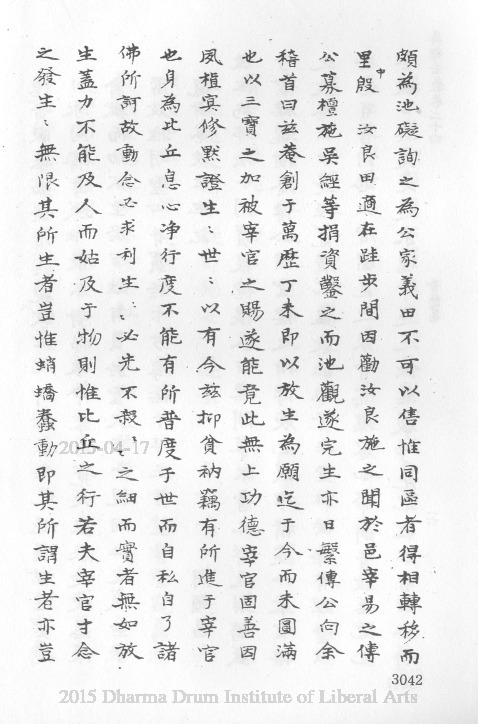 頗為池礙詢之為公家義田不可以售惟同區者得相轉移而
里殷中汝良田適在跬步間因勸汝良施之聞於邑宰易之傳
公募檀施吳經等捐資鑿之而池觀遂完生亦日繁傳公向余
稽首曰茲菴創于萬歷丁未即以放生為願迄于今而未圓滿
也以三寶之加被宰官之賜遂能竟此無上功德宰官固善因
夙植冥修默證生〻世〻以有今茲抑貧衲竊有所進于宰官
也身為比丘息心净行度不能有所普度于世而自私自了諸
佛所訶故動念必求利生〻〻必先不殺〻〻之細而實者無如放
生蓋力不能及人而姑及于物則惟比丘之行若夫宰官才念
之發生〻無限其所生者豈惟蛸蟜蠢動即其所謂生者亦豈
3042
2015-04-17
2015 Dharma Drum Institute of Liberal Arts